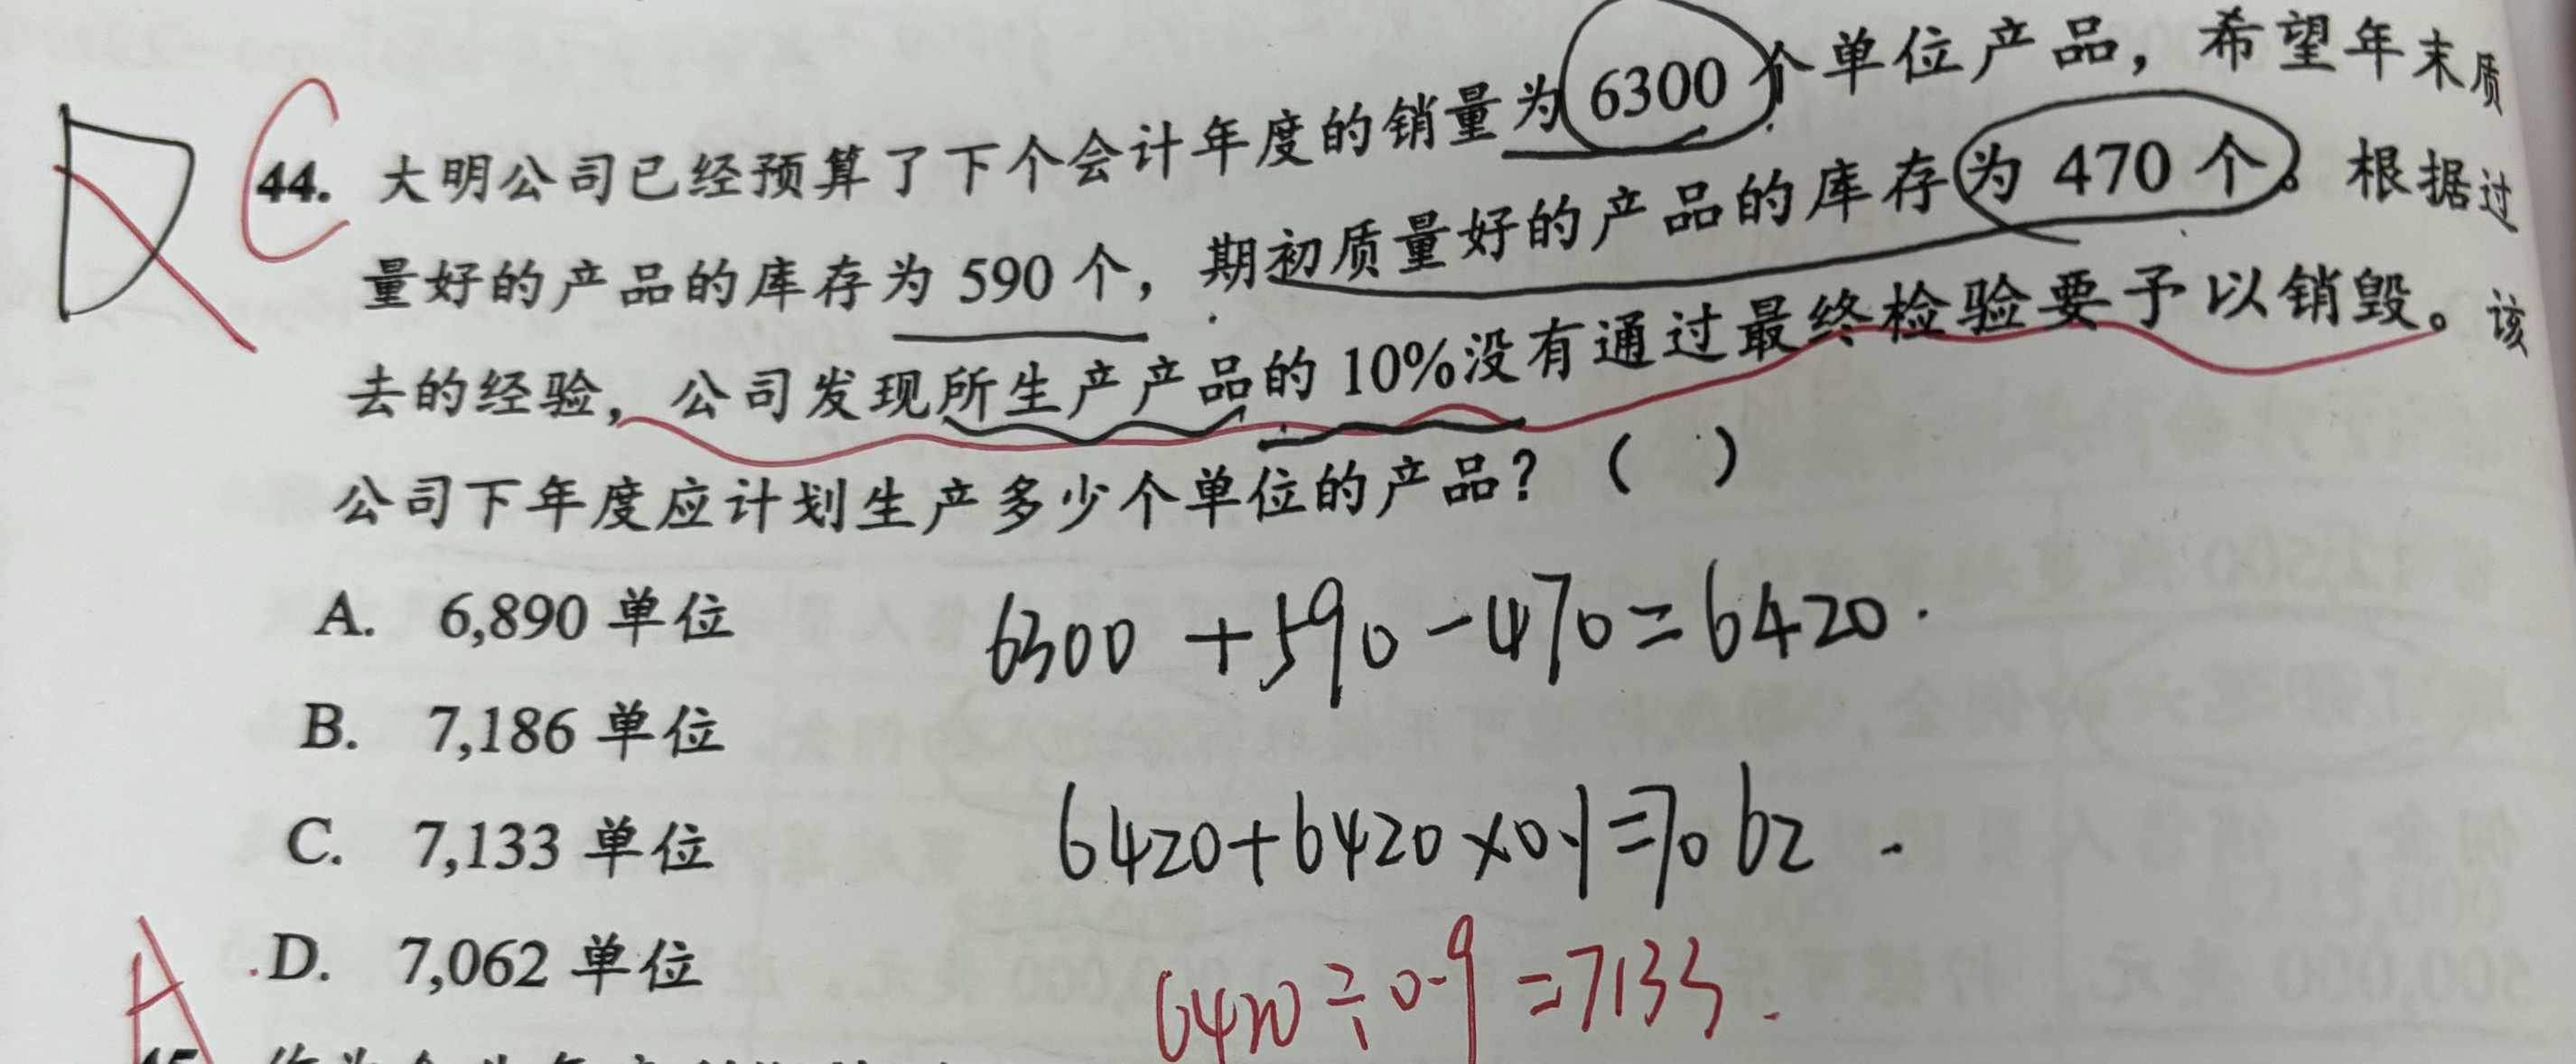 D C
44. 大明公司已经预算了下个会计年度的销量为 6300 个单位产品，希望年末质
量好的产品的库存为 590 个，期初质量好的产品的库存为 470 个。根据过
去的经验，公司发现所生产产品的 10%没有通过最终检验要予以销毁。该
公司下年度应计划生产多少个单位的产品？（ ）
A. 6,890 单位
6300 + 590 - 470 = 6420.
B. 7,186 单位
C. 7,133 单位
6420+6420×0.1=7062.
D. 7,062 单位
6420÷0.9=7133.
A